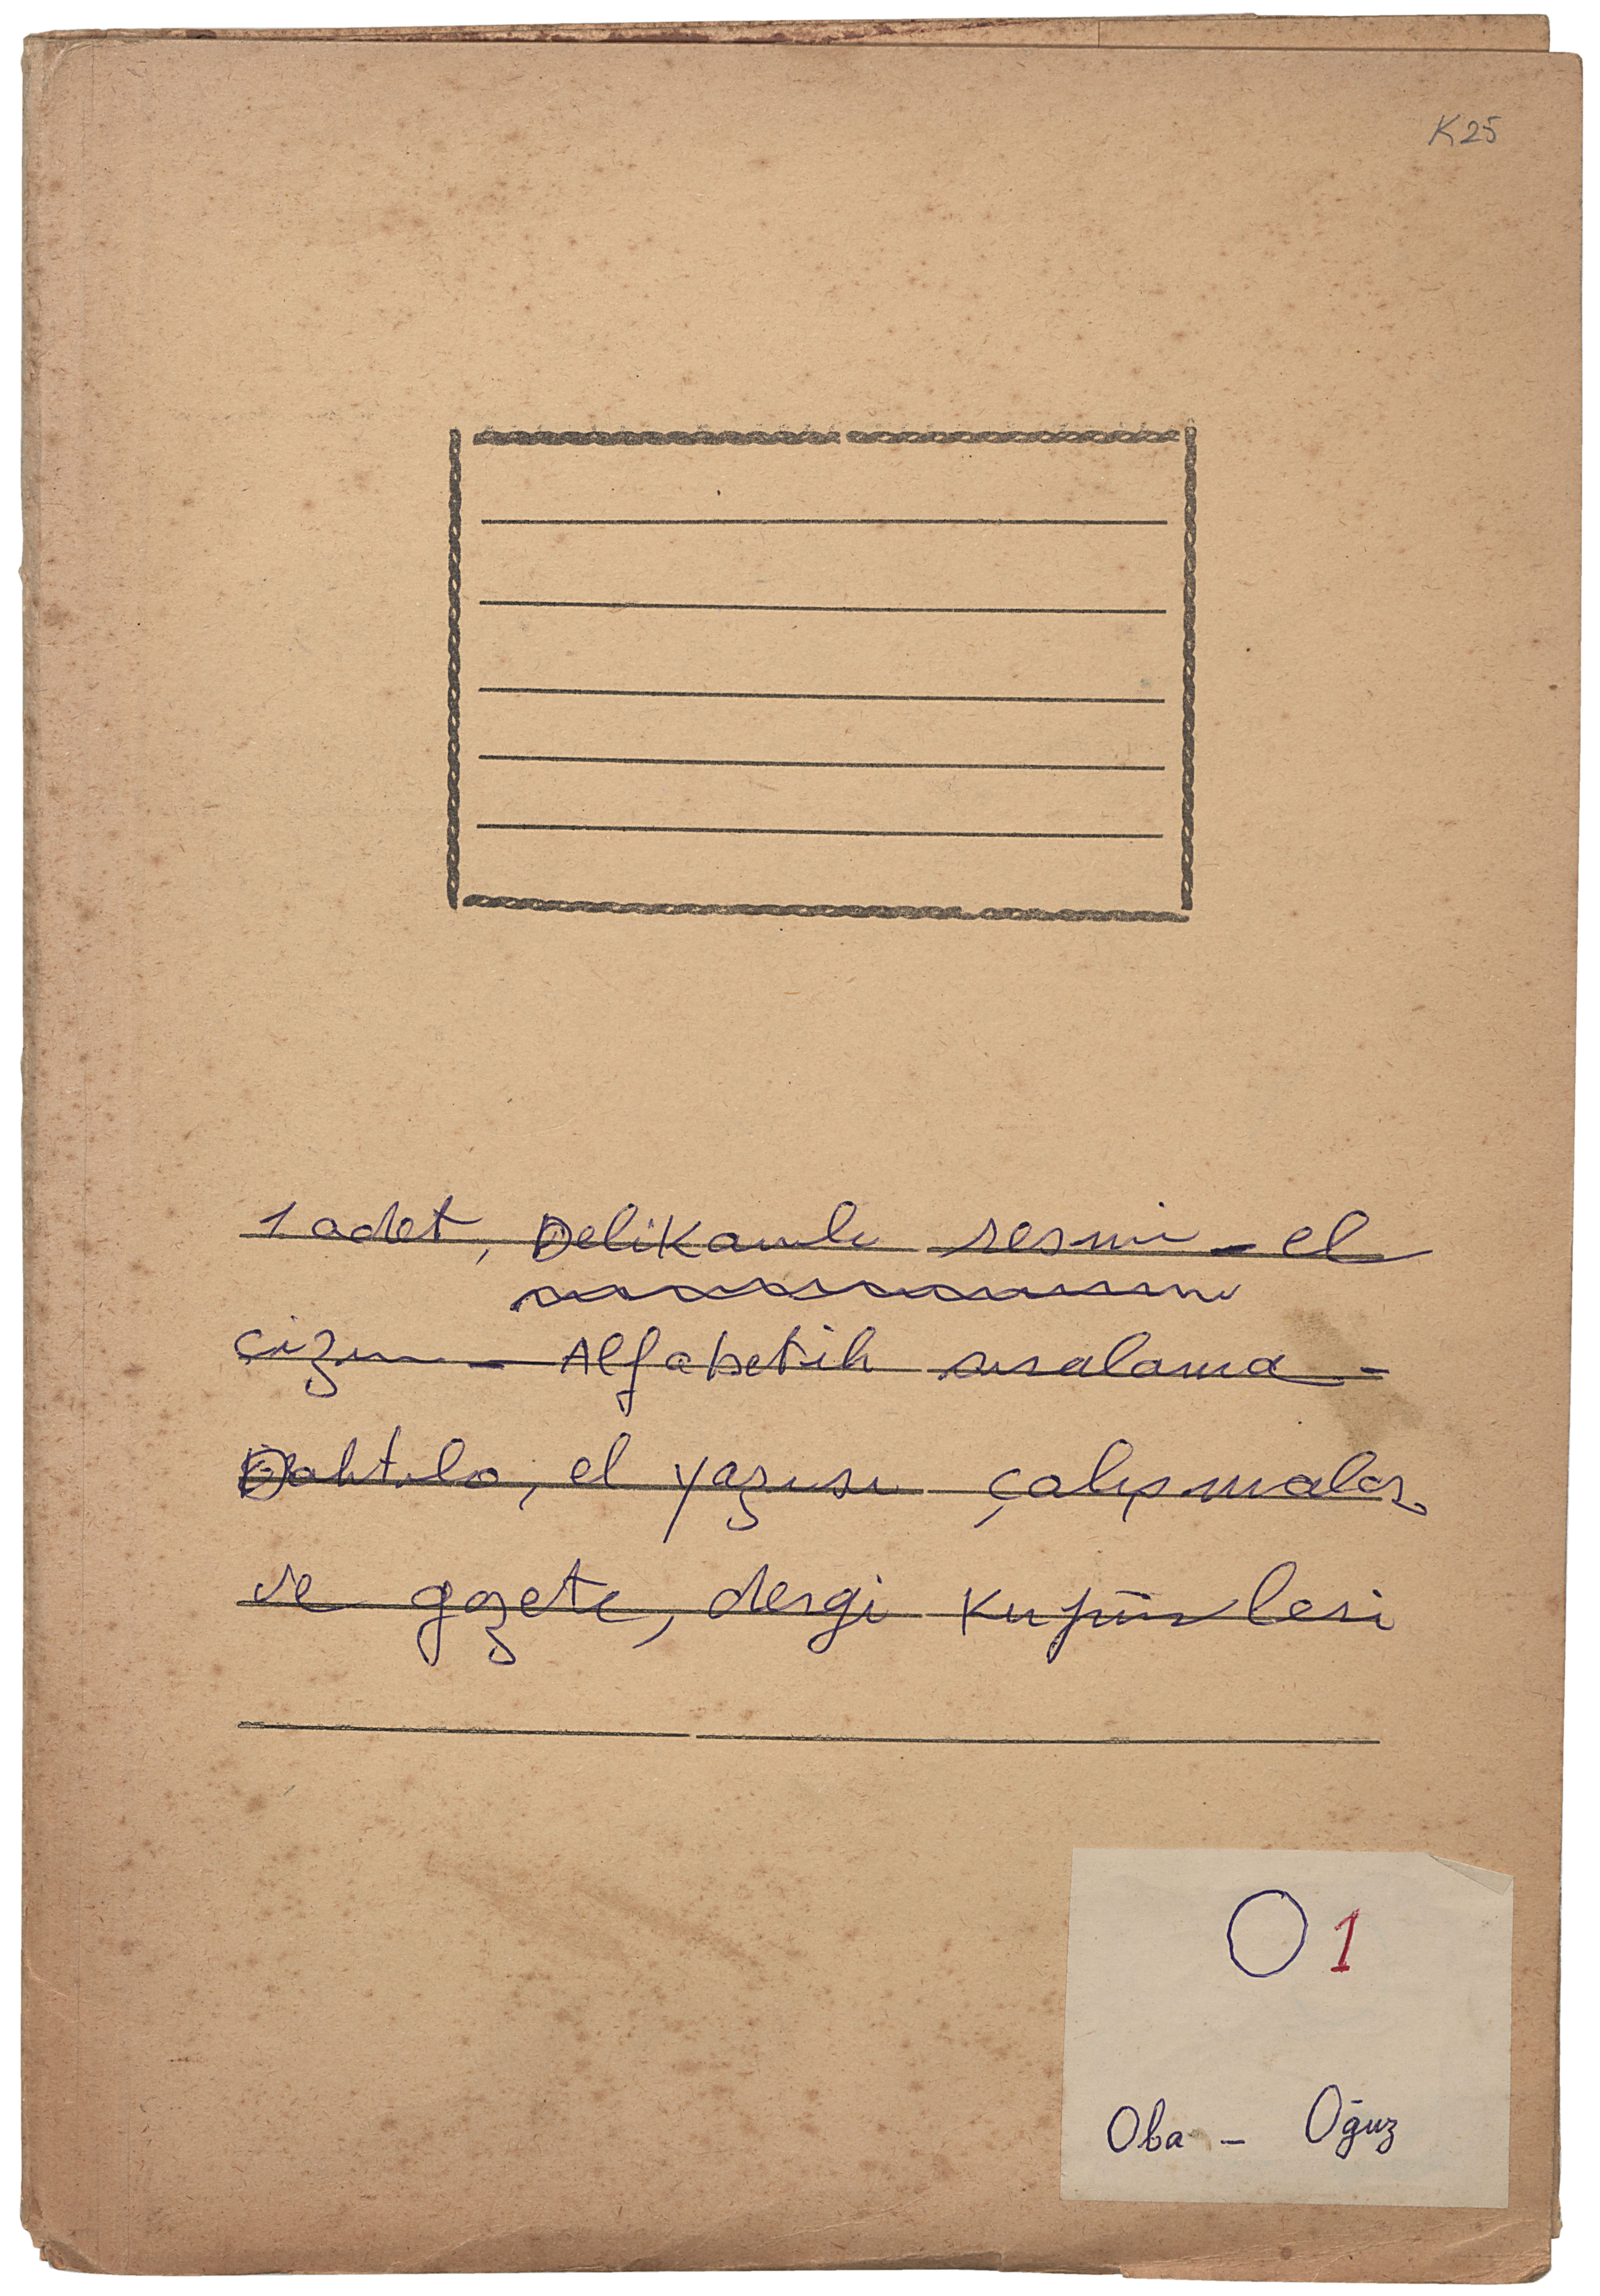 K25
1 adet, Delikanlı resmi - el
çizim - Alfabetik sıralama -
Daktilo, el yazısı çalışmalar
ve gazete, dergi kupürleri
O 1
Oba - Oğuz